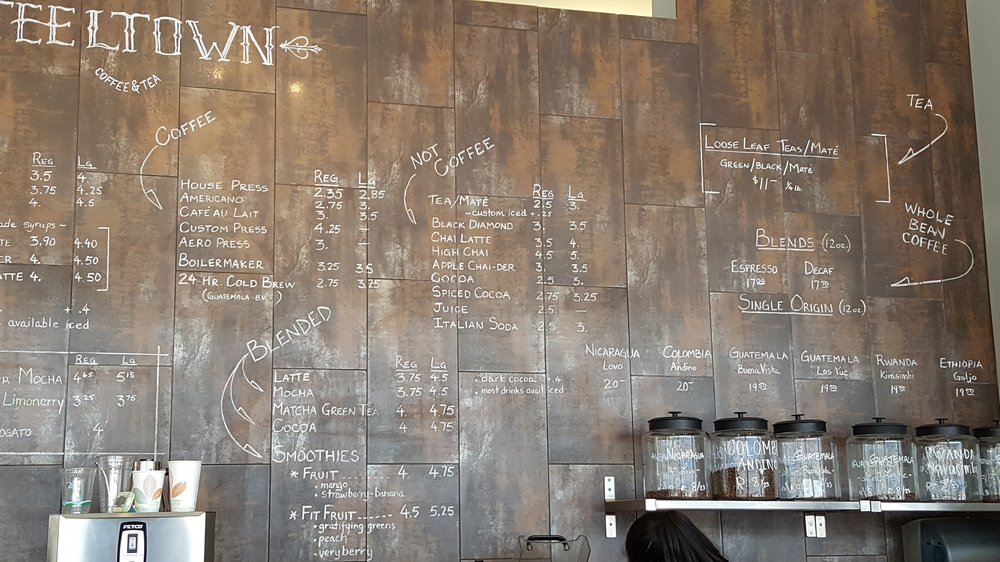 TEELTOWN
COFFEE & TEA
REG LG
3.5 4.
3.75 4.25
4. 4.5
ade syrups ~
TE 3.90 4.40
ER 4. 4.50
ATTE 4. 4.50
+ .4
s available iced
REG LG
ER MOCHA 4.65 5.15
Limonerry 3.25 3.75
OGATO 4
COFFEE
REG LG
HOUSE PRESS 2.35 2.85
AMERICANO 2.75 3.
CAFÉ AU LAIT 3. 3.5
CUSTOM PRESS 4.25 —
AERO PRESS 3. —
BOILERMAKER 3.25 3.5
24 HR. COLD BREW 2.75 3.25
(GUATEMALA-BV)
NOT COFFEE
REG LG
TEA/MATÉ 2.5 3.
~custom iced + .25
BLACK DIAMOND 3. 3.5
CHAI LATTE 3.5 4.
HIGH CHAI 4.5 5.
APPLE CHAI-DER 3. 3.5
COCOA 2.5 3.
SPICED COCOA 2.75 3.25
JUICE 2.5 —
ITALIAN SODA 2.5 3.
BLENDED
REG LG
LATTE 3.75 4.5
MOCHA 3.75 4.5
MATCHA GREEN TEA 4. 4.75
COCOA 4. 4.75
• dark cocoa + .4
• most drinks avail iced
SMOOTHIES
* FRUIT ....... 4. 4.75
• mango
• strawberry-banana
* FIT FRUIT ....... 4.5 5.25
• gratifying greens
• peach
• very berry
TEA
LOOSE LEAF TEAS/MATÉ
GREEN/BLACK/MATÉ
$11-
WHOLE BEAN COFFEE
BLENDS (12oz.)
ESPRESSO DECAF
17.00 17.50
SINGLE ORIGIN (12oz)
NICARAGUA COLOMBIA GUATEMALA GUATEMALA RWANDA ETHIOPIA
Andino Buena Vista Kirasimbi Goljo
20- 20- 19.50 19.50 19.50 19.50
NICARAGUA
8/23
COLOMBIA
ANDINO
R: 8/
GUATEMALA
Buena Vista
GUATEMALA
8/23
RWANDA
FETCO